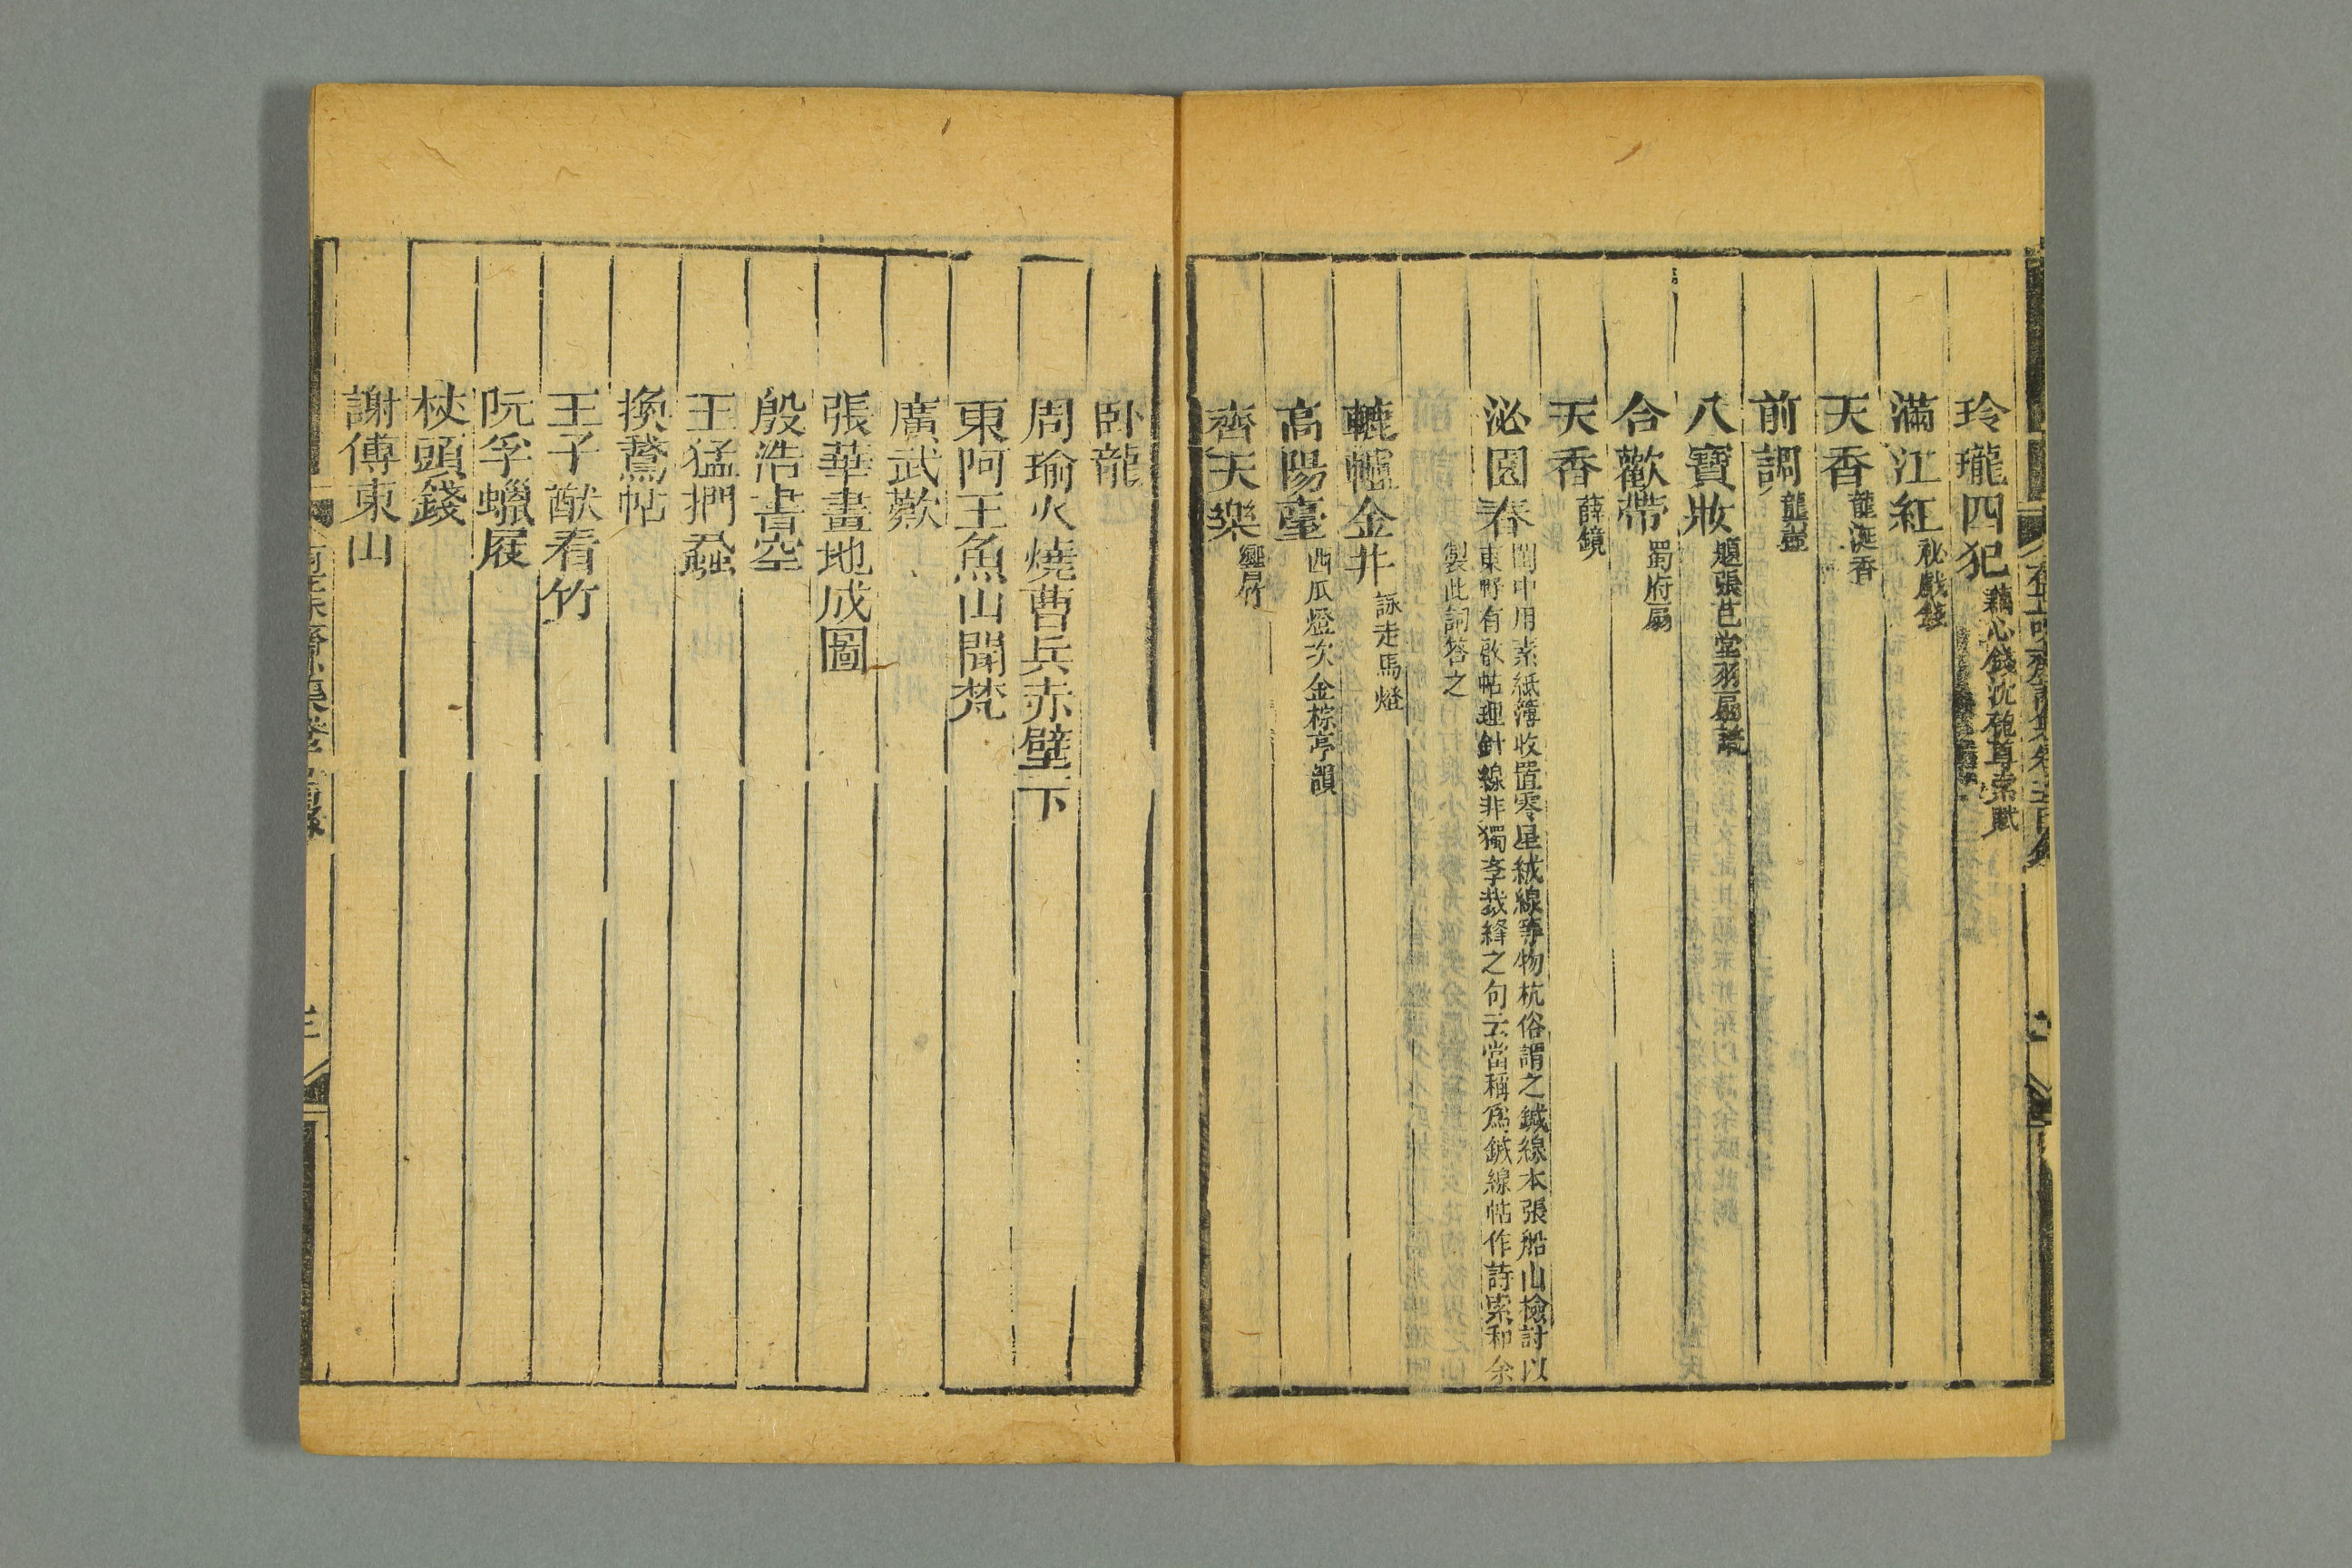 玲瓏四犯 藕心錢沈匏尊索賦
滿江紅 祕戲錢
天香 龍涎香
前調 龍壺
八寶妝 題張芑堂羽扇譜
合歡帶 蜀府扇
天香 薛鏡
沁園春 閨中用素紙簿收置零星絨線等物杭俗謂之鍼線本張船山檢討以
東野有啟帖理針線非獨李裁縫之句云當稱為鍼線帖作詩索和余
製此詞答之
轆轤金井 詠走馬燈
高陽臺 西瓜燈次金棕亭韻
齊天樂 響竹
卧龍
周瑜火燒曹兵赤壁下
東阿王魚山聞梵
廣武歎
張華畫地成圖
殷浩書空
王猛捫蝨
換鵞帖
王子猷看竹
阮孚蠟屐
杖頭錢
謝傅東山